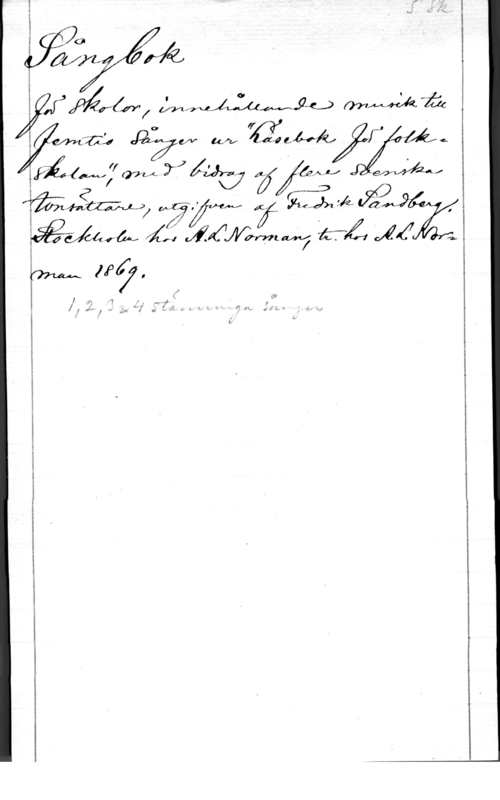 S Sk
Sångbok
för skolor, innehållande musik till
femtio sånger ur "Läsebok för folk-
skolan", med bidrag af flere svenska
tonsättare, utgifven af Fredrik Sandberg.
Stockholm hos A.L. Norman, tr. hos A.L. Nor-
man 1869.
1,2,3 & 4 stämmiga sånger